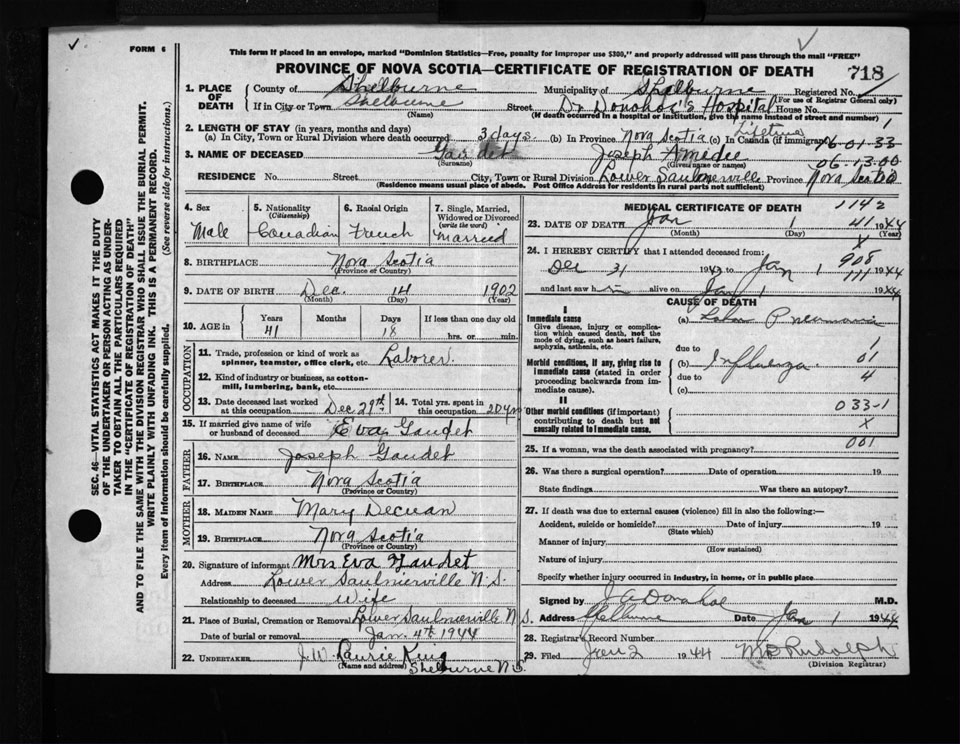 ✓
FORM 6
This form if placed in an envelope, marked "Dominion Statistics—Free, penalty for improper use $300," and properly addressed will pass through the mail "FREE"
PROVINCE OF NOVA SCOTIA—CERTIFICATE OF REGISTRATION OF DEATH 718
1. PLACE OF DEATH
County of Shelburne Municipality of Shelburne Registered No.
(For use of Registrar General only)
If in City or Town Shelburne Street Dr Donahoe's Hospital House No.
(Name) (If death occurred in a hospital or institution, give the name instead of street and number)
2. LENGTH OF STAY (in years, months and days)
(a) In City, Town or Rural Division where death occurred 3 days. (b) In Province Nova Scotia (c) In Canada (if immigrant) Lifetime 1
16-01-33
3. NAME OF DECEASED Gaudet Joseph Amedee
(Surname) (Given name or names)
06-13-00
RESIDENCE No. Street City, Town or Rural Division Lower Saulnierville Province Nova Scotia
(Residence means usual place of abode. Post Office Address for residents in rural parts not sufficient)
4. Sex Male
5. Nationality (Citizenship) Canadian
6. Racial Origin French
7. Single, Married, Widowed or Divorced (write the word) Married
8. BIRTHPLACE Nova Scotia
(Province or Country)
9. DATE OF BIRTH Dec. 14 1902
(Month) (Day) (Year)
10. AGE in Years Months Days If less than one day old
41 18 hrs. or min.
OCCUPATION
11. Trade, profession or kind of work as spinner, teamster, office clerk, etc. Laborer.
12. Kind of industry or business, as cotton-mill, lumbering, bank, etc.
13. Date deceased last worked at this occupation Dec 29th
14. Total yrs. spent in this occupation 20 yrs
15. If married give name of wife or husband of deceased Eva Gaudet
FATHER
16. NAME Joseph Gaudet
17. BIRTHPLACE Nova Scotia
(Province or Country)
MOTHER
18. MAIDEN NAME Mary
19. BIRTHPLACE Nova Scotia
(Province or Country)
20. Signature of informant Mrs Eva Gaudet
Address Lower Saulnierville N.S.
Relationship to deceased Wife
21. Place of Burial, Cremation or Removal Lower Saulnierville N.S.
Date of burial or removal Jan. 4th 1944
22. UNDERTAKER J. W. Laurie King
(Name and address) Shelburne N.S.
MEDICAL CERTIFICATE OF DEATH 1142
23. DATE OF DEATH Jan 1 1944
(Month) (Day) (Year)
X
24. I HEREBY CERTIFY that I attended deceased from: 908
Dec 31 1943 to Jan 1 1944
111
and last saw him alive on Jan 1 1944
CAUSE OF DEATH
I
Immediate cause
Give disease, injury or complication which caused death, not the mode of dying, such as heart failure, asphyxia, asthenia, etc.
(a) Lobar Pneumonia
due to 1
Morbid conditions, if any, giving rise to immediate cause (stated in order proceeding backwards from immediate cause).
(b) Influenza. 01
due to 4
(c)
II
Other morbid conditions (if important) contributing to death but not causally related to immediate cause.
033-1
X
25. If a woman, was the death associated with pregnancy? 001
26. Was there a surgical operation? Date of operation 19
State findings Was there an autopsy?
27. If death was due to external causes (violence) fill in also the following:—
Accident, suicide or homicide? Date of injury 19
(State which)
Manner of injury
(How sustained)
Nature of injury
Specify whether injury occurred in industry, in home, or in public place
Signed by J A Donahoe M.D.
Address Shelburne Date Jan 1 1944
28. Registrar's Record Number
29. Filed Jan 2 1944 M B Rudolph
(Division Registrar)
SEC. 46—VITAL STATISTICS ACT MAKES IT THE DUTY
OF THE UNDERTAKER OR PERSON ACTING AS UNDER-
TAKER TO OBTAIN ALL THE PARTICULARS REQUIRED
IN THE "CERTIFICATE OF REGISTRATION OF DEATH"
AND TO FILE THE SAME WITH THE DIVISION REGISTRAR WHO SHALL ISSUE THE BURIAL PERMIT.
WRITE PLAINLY WITH UNFADING INK. THIS IS A PERMANENT RECORD.
Every item of information should be carefully supplied. (See reverse side for instructions.)